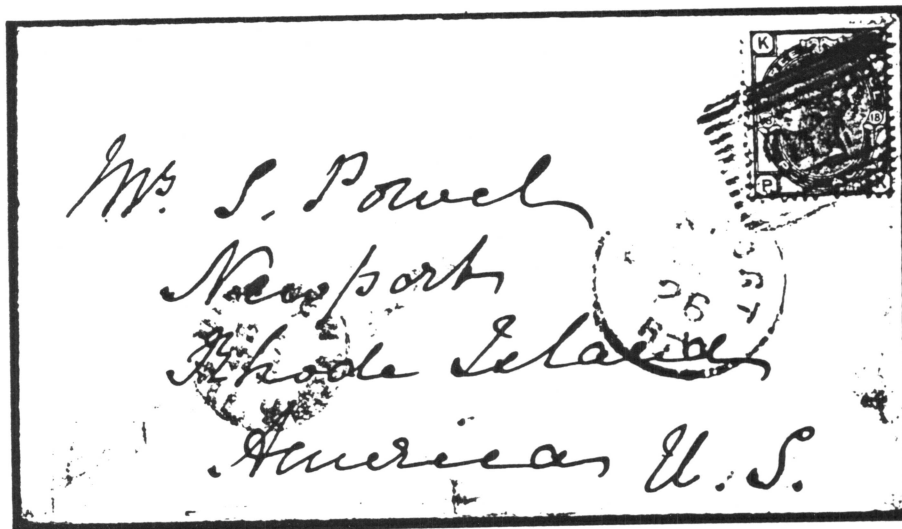 K
18
P K
Mrs. S. Powel
Newport
Rhode Island
America U. S.